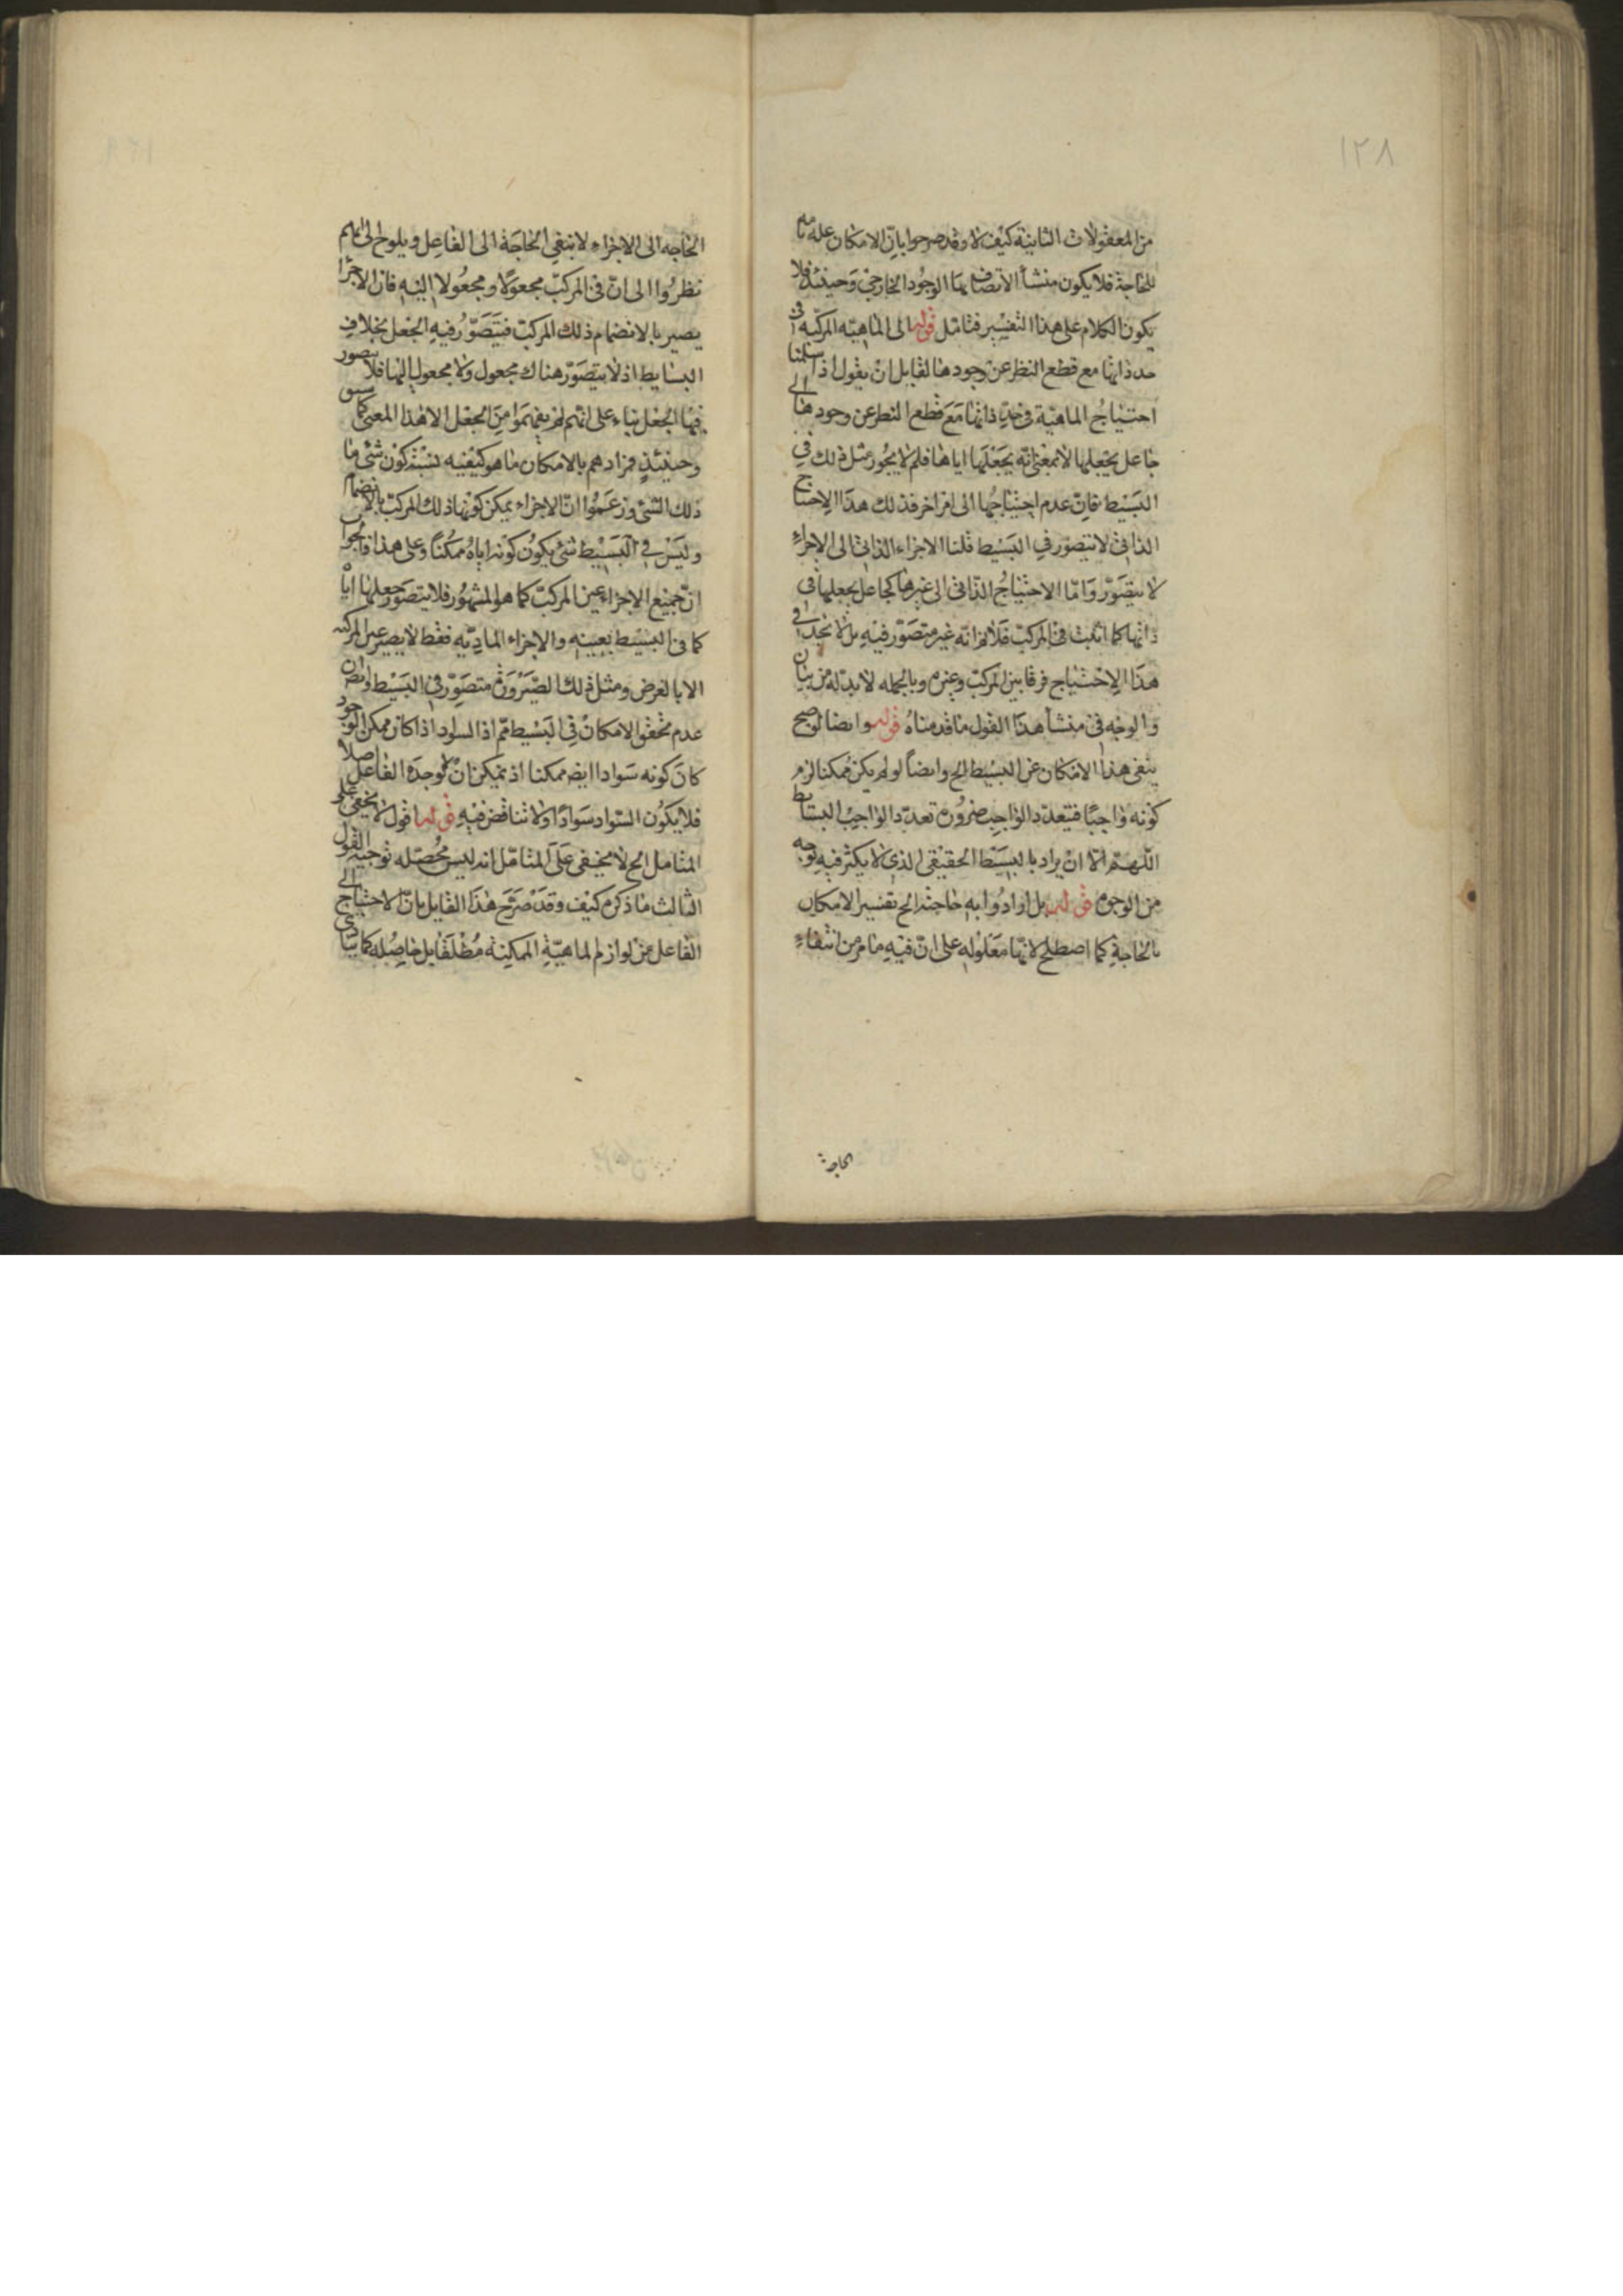 ١٢٨
من المعقولات الثانية كيف لا وقد صرحوا بان الامكان علة تامة
للحاجة فلا يكون منشأ الاتصاف بها الوجود الخارجي وحينئذ فلا
يكون الكلام على هذا التفسير فتامل قوله الى الماهية المركبة في
حد ذاتها مع قطع النظر عن وجودها لقايل ان يقول اذا سلمنا
احتياج الماهية في حد ذاتها مع قطع النظر عن وجودها الى
جاعل يجعلها لا بمعنى انه يجعلها اياها فلم لا يجوز مثل ذلك في
البسيط فان عدم احتياجها الى امر اخر فذلك هذا الاحتياج
الذاتي لا يتصور في البسيط قلنا الاجزاء الذاتي الى الاجزاء
لا يتصور واما الاحتياج الذاتي الى غيرها كجاعل يجعلها في
ذاتها كما اثبت في المركب فلانم انه غير متصور فيه بل لا نجد في
هذا الاحتياج فرقا بين المركب وغيره وبالجمله لا بد له من بيان
والوجه في منشأ هذا القول ما قدمناه قوله وايضا لو صح
ينفي هذا الامكان عن البسيط الخ وايضاً لو لم يكن ممكنا لزم
كونه واجبًا فتعدد الواجب ضرورة تعدد الواجب البسايط
اللهم الا ان يراد بالبسيط الحقيقي الذي لا يكثر فيه بوجه
من الوجوه قوله بل ارادوا به حاجته الخ تفسير الامكان
بالحاجة كما اصطلح لانها معلوله على ان فيه ما مر من انتفاء
الحاجة
الحاجه الى الاجزاء لا ينفي الحاجة الى الفاعل ويلوح لى انهم
نظروا الى ان في المركب مجعولا ومجعولا اليه فان الاجزا
يصير بالانضمام ذلك المركب فيتصور فيه الجعل بخلاف
البسايط اذ لا يتصور هناك مجعول ولا مجعول اليها فلا يتصور
فيها الجعل بناء على انهم لم يفهموا من الجعل الا هذا المعنى كما سبق
وحينئذ فمرادهم بالامكان ما هو كيفيه نسبة كون شئ ما
ذلك الشئ وزعموا ان الاجزاء يمكن كونها ذلك المركب بالانضمام
وليس في البسيط شئ يكون كونه اياه ممكنًا وعلى هذا
ان جميع الاجزاء عين المركب كما هو المشهور فلا يتصور جعلها اياه
كما في البسيط بعينه والاجزاء المادية فقط لا يصير عين المركب
الا بالعرض ومثل ذلك الصيرورة متصور في البسيط وايضا ان
عدم تحقق الامكان في البسيط مم اذ السواد اذا كان ممكن الوجود
كان كونه سوادا ايضا ممكنا اذ يمكن ان لا يوجده الفاعل اصلا
فلا يكون السواد سوادًا ولا تناقض فيه قوله اقول لا يخفى على
المتامل الخ لا يخفى على المتامل انه ليس محصله توجيه القول
الثالث ما ذكره كيف وقد صرح هذا القايل بان الاحتياج الى
الفاعل من لوازم الماهية الممكنة مطلقا بل حاصله كما ينادى